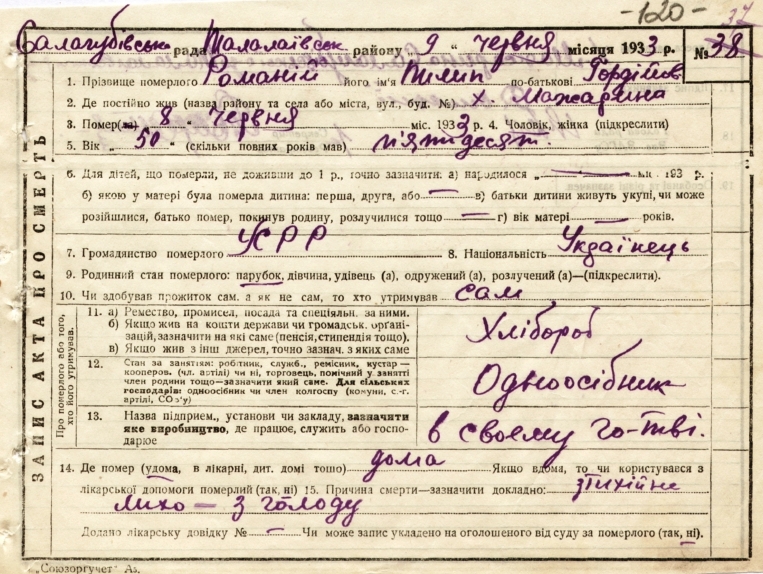 -120-
37
Салогубівська рада Талалаївськ району 9 „ червня місяця 1933 р. № 38
1. Прізвище померлого Романій його ім'я Пилип по-батькові Гордійов
2. Де постійно жив (назва району та села або міста, вул., буд. №) х. Мажарівка
3. Помер(ла) 8 „ червня міс. 1933 р. 4. Чоловік, жінка (підкреслити)
5. Вік „ 50 „ (скільки повних років мав) п'ятидесят.
6. Для дітей, що померли, не доживши до 1 р., точно зазначити: а) народилося „ — 193 р.
б) якою у матері була померла дитина: перша, друга, або — в) батьки дитини живуть укупі, чи може
розійшлися, батько помер, покинув родину, розлучилися тощо — г) вік матері — років.
7. Громадянство померлого УСРР 8. Національність Українець
9. Родинний стан померлого: парубок, дівчина, удівець (а), одружений (а), розлучений (а)—(підкреслити).
10. Чи здобував прожиток сам, а як не сам, то хто утримував сам
ЗАПИС АКТА ПРО СМЕРТЬ
Про померлого або того, хто його утримував.
11. а) Ремество, промисел, посада та спеціяльн. за ними.
б) Якщо жив на кошти держави чи громадськ. органі-
зацій, зазначити на які саме (пенсія, стипендія тощо).
в) Якщо жив з інш джерел, точно зазнач. з яких саме
Хлібороб
12. Стан за заняттям: робітник, служб., ремісник, кустар —
кооперов. (чл. артілі) чи ні, торговець, помічний у занятті
член родини тощо—зазначити який саме. Для сільських
господарів: одноосібник чи член колгоспу (комуни, с.-г.
артілі, СОЗ'у)
Одноосібник
13. Назва підприєм., установи чи закладу, зазначити
яке виробництво, де працює, служить або госпо-
дарює
в своему го-тві.
14. Де помер (удома, в лікарні, дит. домі тощо) дома Якщо вдома, то чи користувався з
лікарської допомоги померлий (так, ні) 15. Причина смерти—зазначити докладно: стихійне
лихо — з голоду
Додано лікарську довідку № — Чи може запис укладено на оголошеного від суду за померлого (так, ні).
„Союзоргучет" Аз.